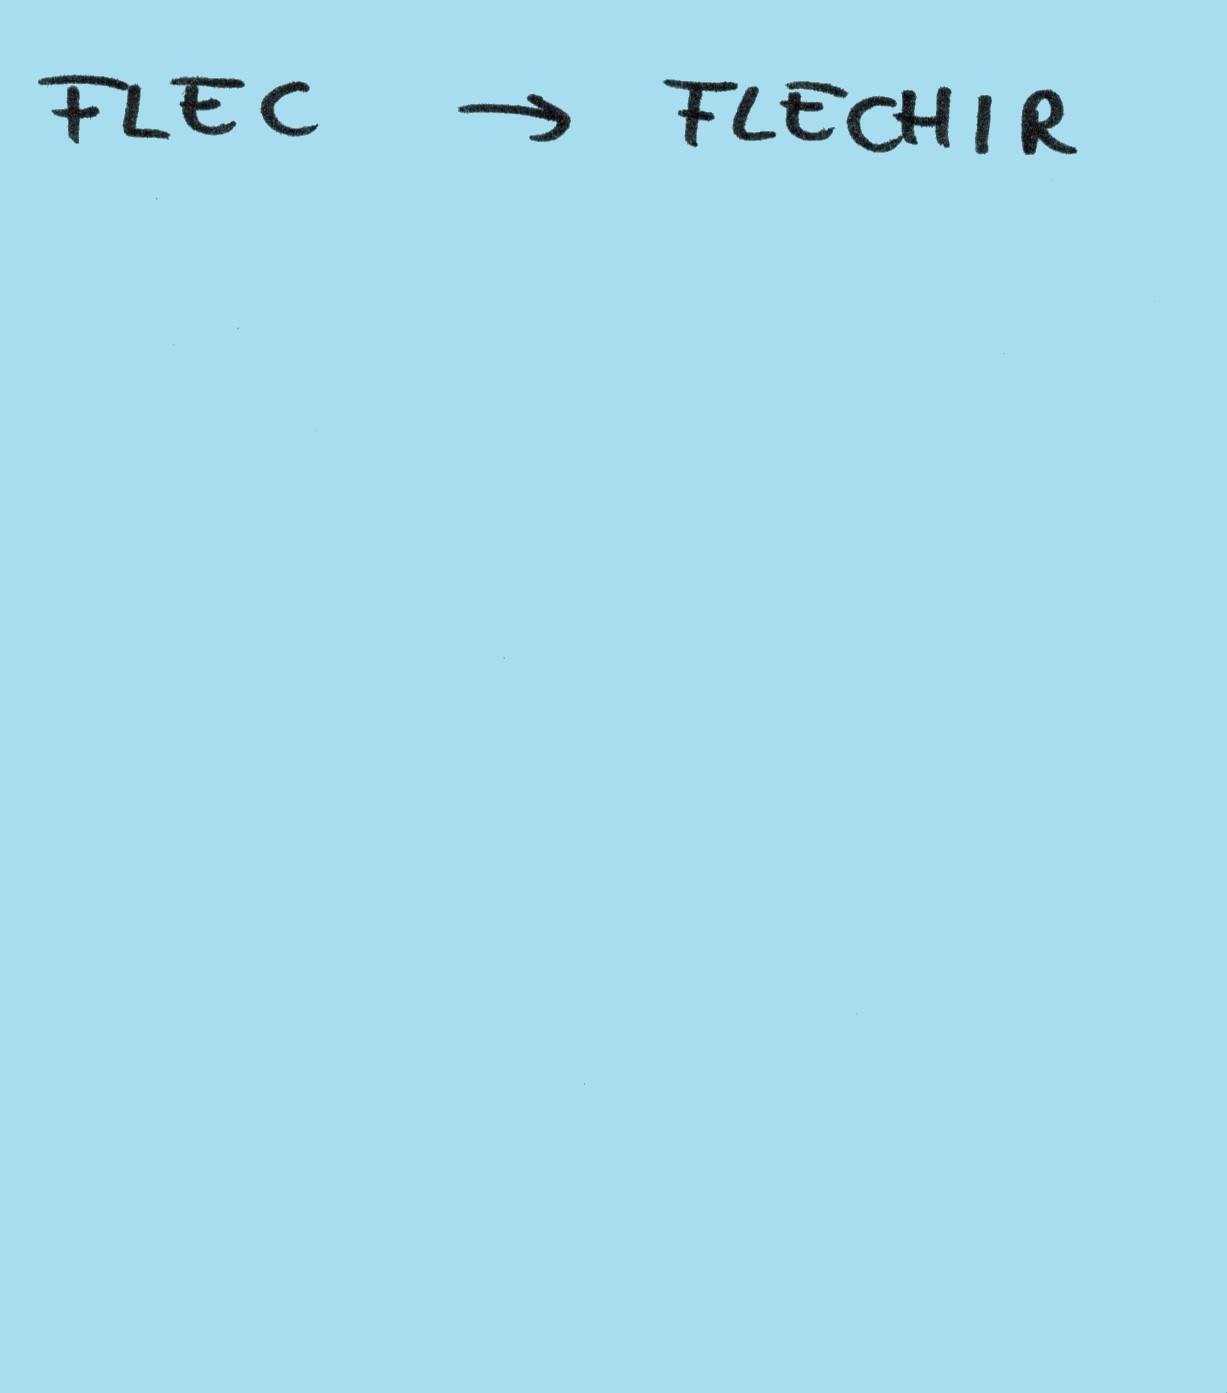 FLEC → FLECHIR